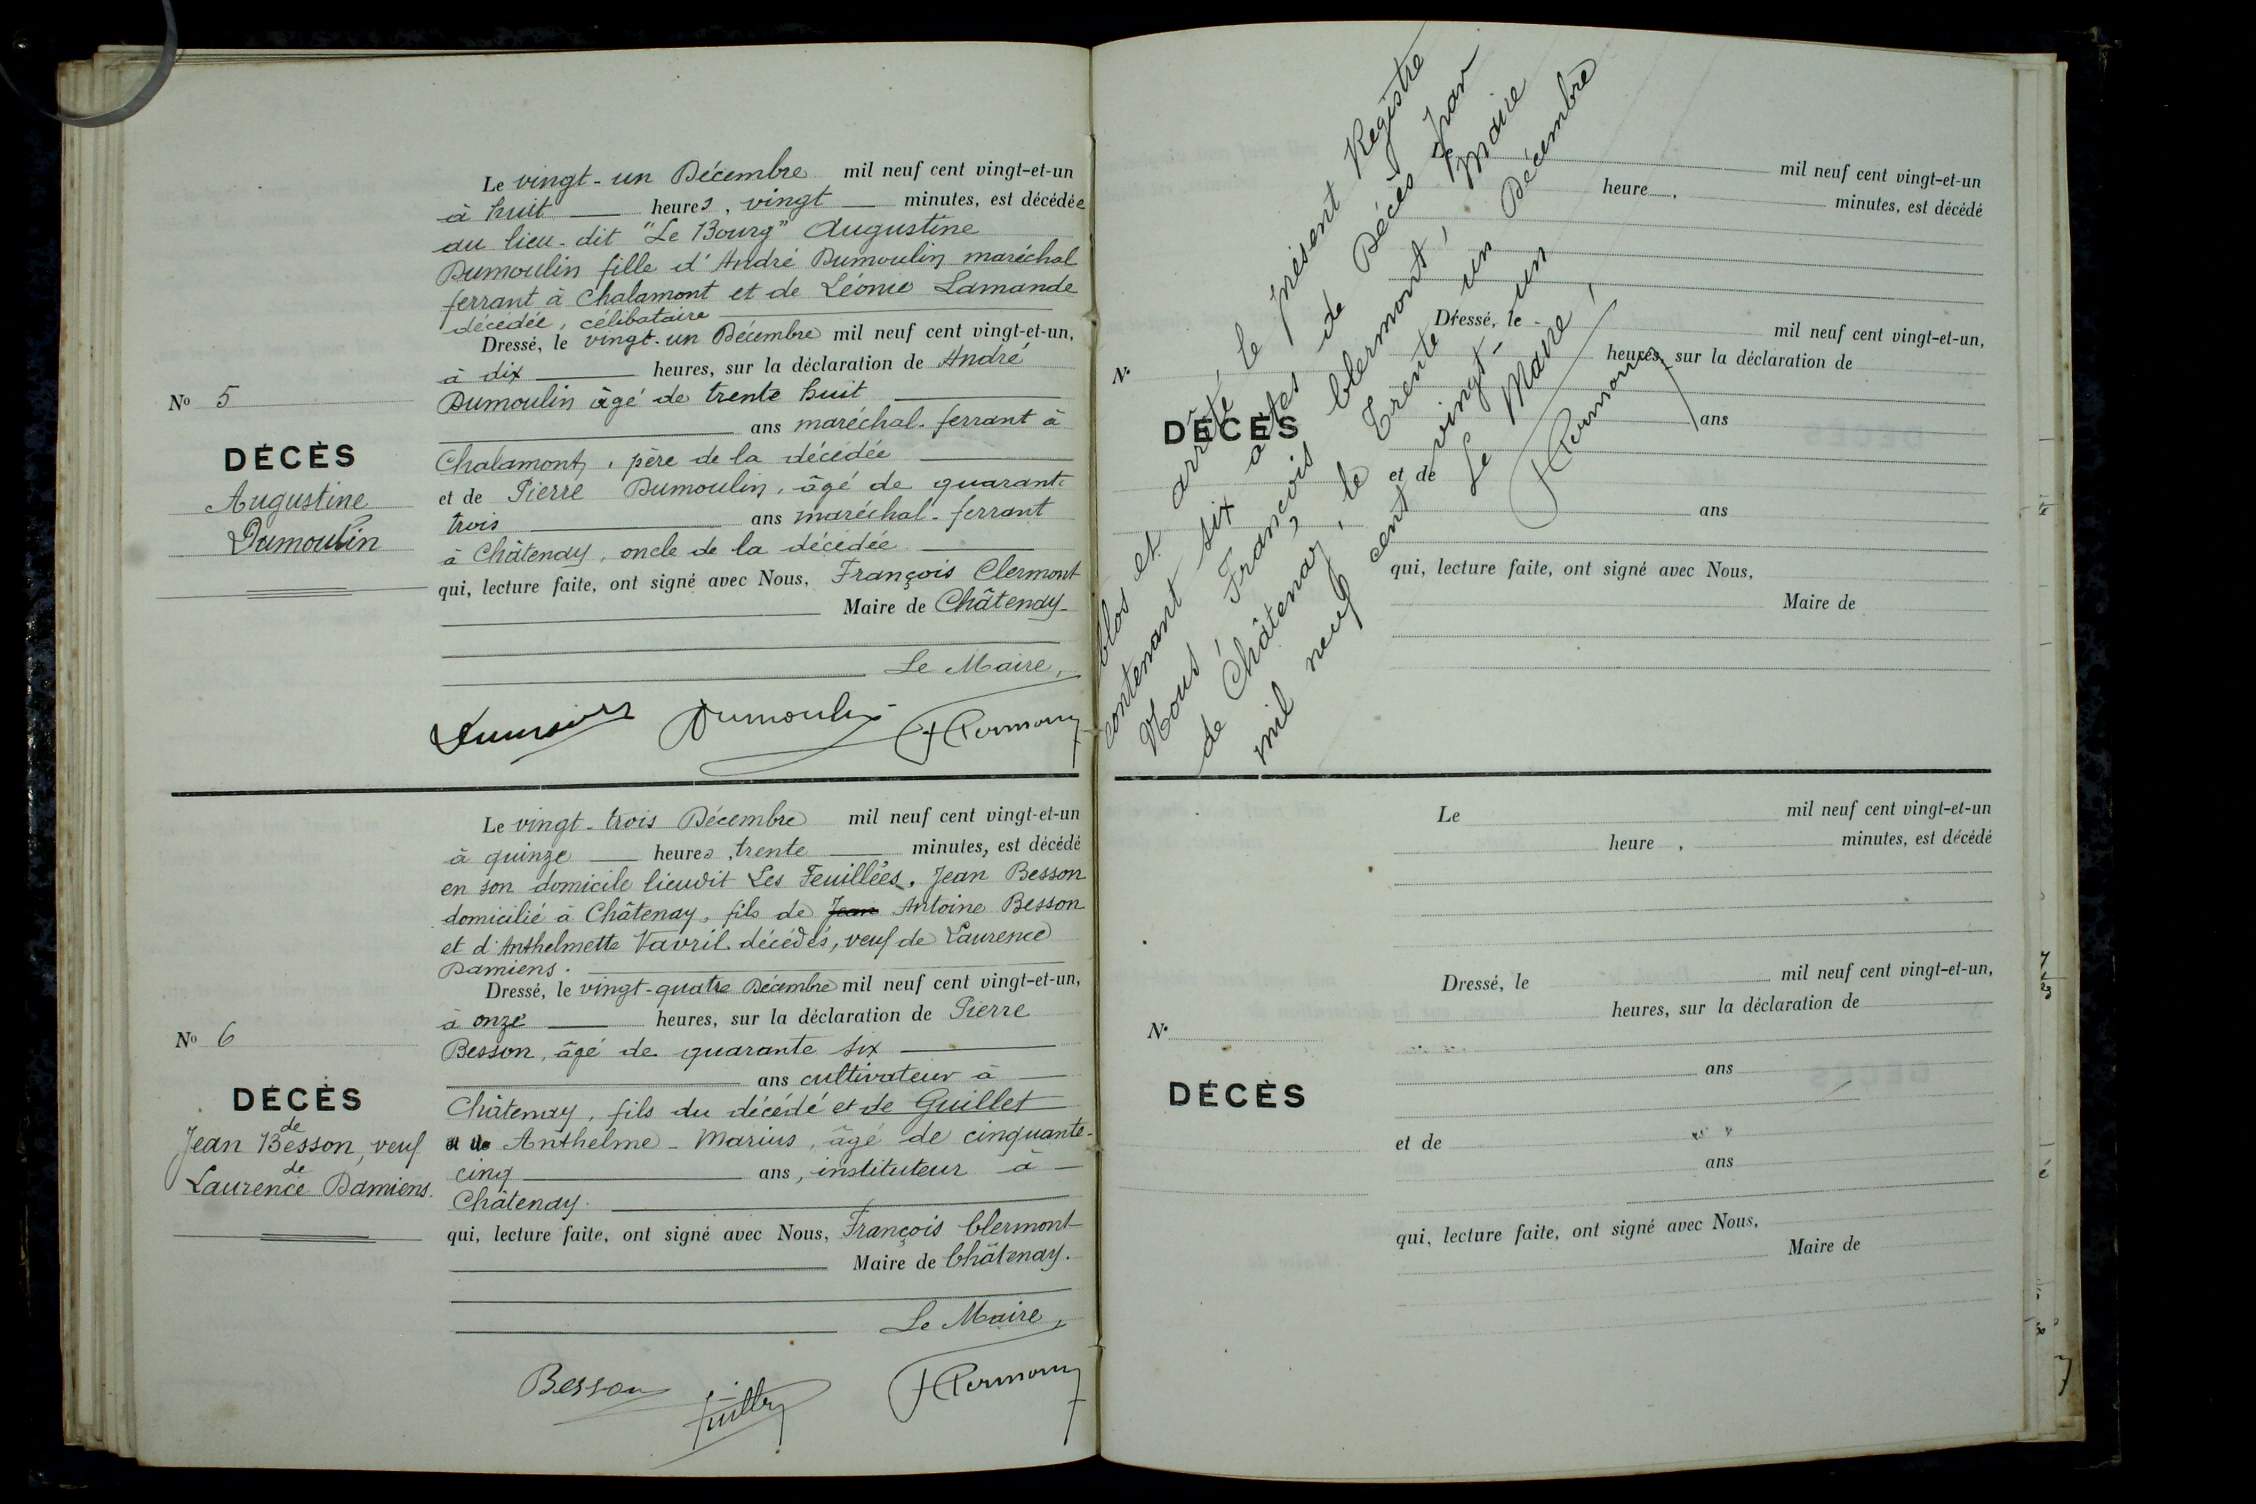 Le vingt-un Décembre mil neuf cent vingt-et-un
à huit heures, vingt minutes, est décédée
au lieu-dit "Le Bourg" Augustine
Dumoulin fille d'André Dumoulin maréchal
ferrant à Chalamont et de Léonie Lamande
décédée, célibataire
Dressé, le vingt-un Décembre mil neuf cent vingt-et-un,
à dix heures, sur la déclaration de André
Dumoulin âgé de trente huit
ans maréchal-ferrant à
Chalamont, père de la décédée
et de Pierre Dumoulin, âgé de quarante
trois ans maréchal-ferrant
à Châtenay, oncle de la décédée
qui, lecture faite, ont signé avec Nous, François Clermont
Maire de Châtenay
Le Maire,
Dumoulin
F Clermont
No 5
DÉCÈS
Augustine
Dumoulin
Le vingt-trois Décembre mil neuf cent vingt-et-un
à quinze heures, trente minutes, est décédé
en son domicile lieudit Les Feuillées, Jean Besson
domicilié à Châtenay, fils de Jean Antoine Besson
et d'Anthelmette Vavril décédés, veuf de Laurence
Damiens.
Dressé, le vingt-quatre Décembre mil neuf cent vingt-et-un,
à onze heures, sur la déclaration de Pierre
Besson, âgé de quarante six
ans cultivateur à
Châtenay, fils du décédé et de Guillet
et de Anthelme-Marius, âgé de cinquante-
cinq ans, instituteur à
Châtenay.
qui, lecture faite, ont signé avec Nous, François Clermont
Maire de Châtenay.
Le Maire,
Besson
F Clermont
No 6
DÉCÈS
de
Jean Besson, veuf
de
Laurence Damiens.
Clos et arrêté le présent Registre
contenant six actes de Décès par
Nous, François Clermont, Maire
de Châtenay, le Trente un Décembre
mil neuf cent vingt-un
Le Maire,
F Clermont
Le mil neuf cent vingt-et-un
heure, minutes, est décédé
Dressé, le mil neuf cent vingt-et-un,
heures, sur la déclaration de
ans
et de
ans
qui, lecture faite, ont signé avec Nous,
Maire de
N.
DÉCÈS
Le mil neuf cent vingt-et-un
heure, minutes, est décédé
Dressé, le mil neuf cent vingt-et-un,
heures, sur la déclaration de
ans
et de
ans
qui, lecture faite, ont signé avec Nous,
Maire de
N.
DÉCÈS